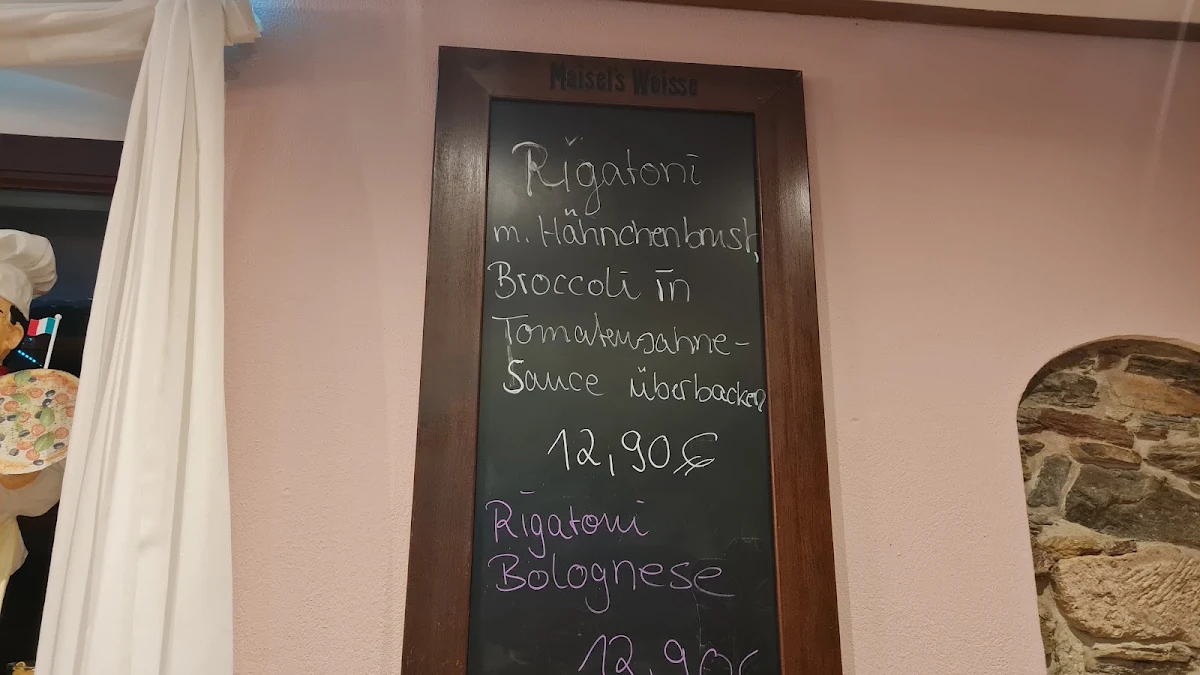 Maisel's Weisse
Rigatoni
m. Hähnchenbrust,
Broccoli in
Tomatensahne-
Sauce überbacken
12,90€
Rigatoni
Bolognese
12,90€